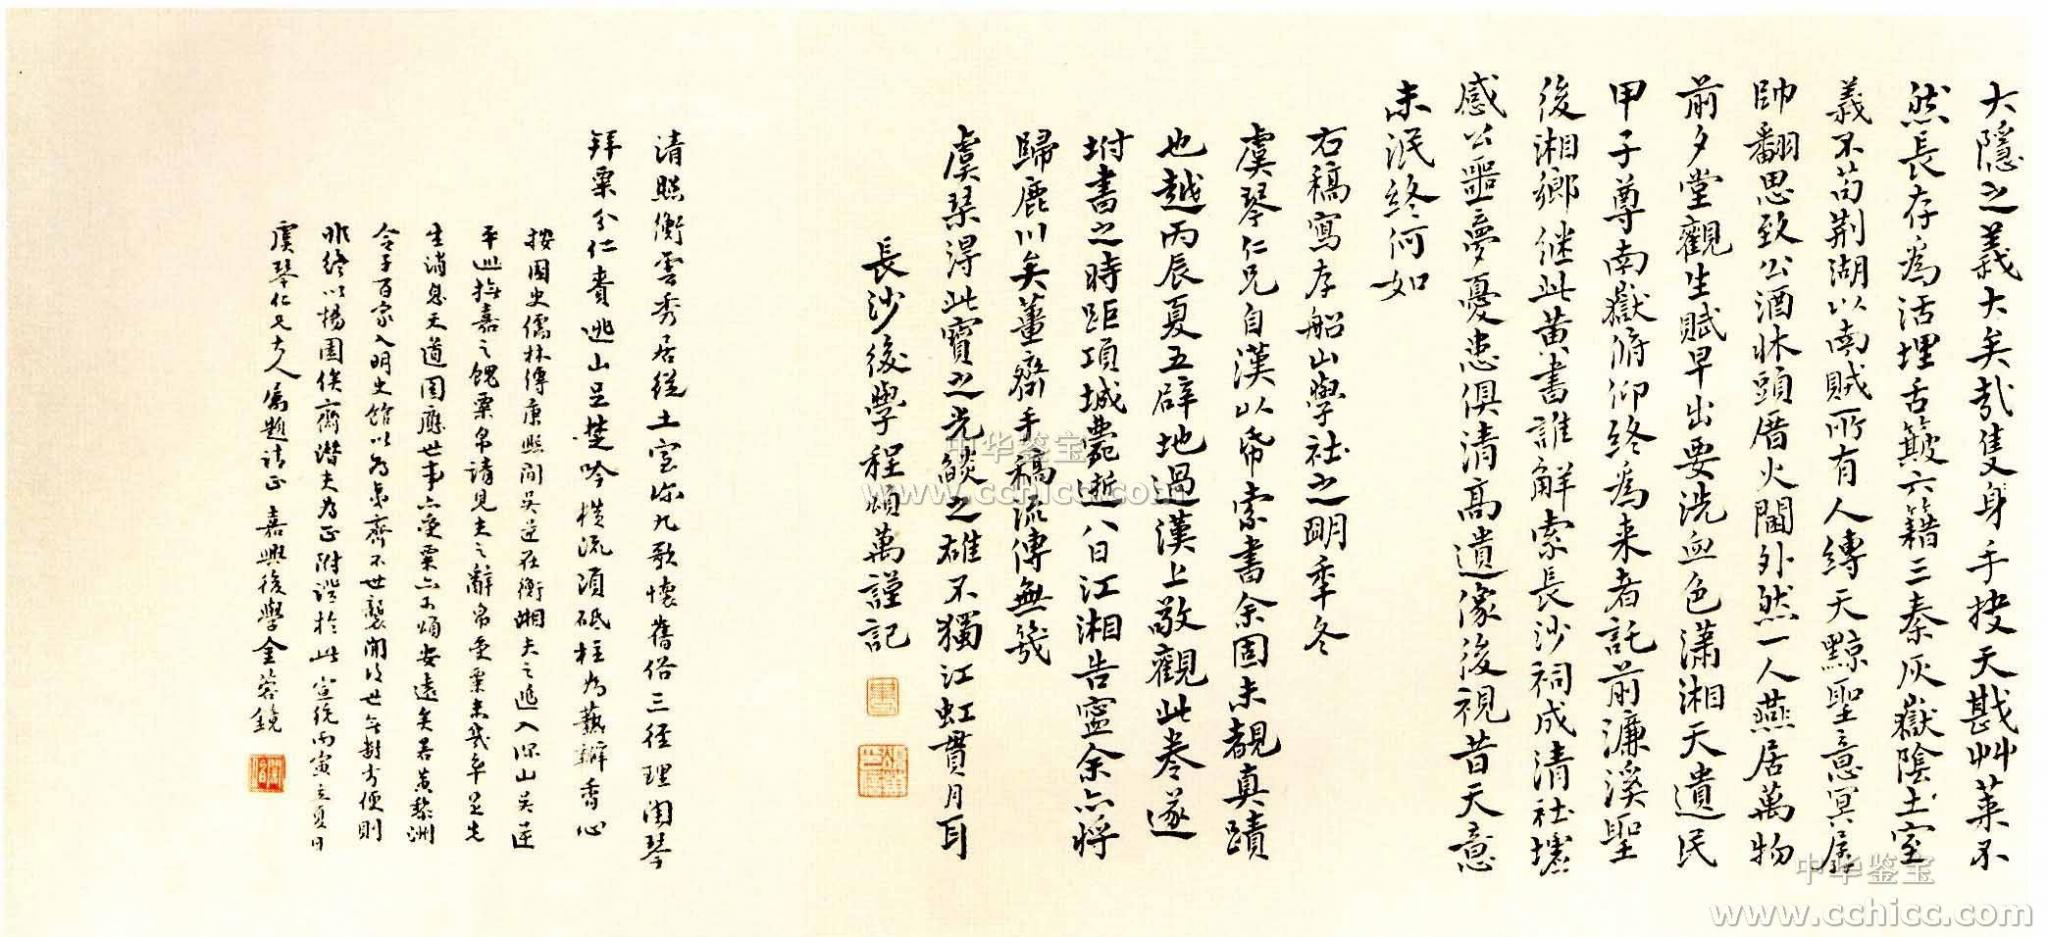 大隱之義大矣哉隻身手抉天戡艸萊不
然長存為活埋舌簸六籍三秦灰嶽陰土室
義不苟荊湖以南賊所有人縛天黥聖意冥居
帥翻思致公酒怵頭厝火闔外然一人燕居萬物
前夕堂觀生賦早出要洗血色瀟湘天遺民
甲子尊南嶽俯仰終為來者託前濂溪聖
後湘鄉繼此黃書誰解索長沙祠成清社墟
感公噩夢憂患俱清高遺像後視昔天意
未泯終何如
右稿寫存船山學社之明季冬
虞琴仁兄自漢以帋索書余固未覩真蹟
也越丙辰夏五辟地過漢上敬觀此卷遂
坿書之時距項城薨逝八日江湘告寧余亦將
歸鹿川矣薑齋手稿流傳無幾
虞琴得此寶之光燄之雄不獨江虹貫月耳
長沙後學程頌萬謹記
清照衡雲秀居從土室深九歌懷舊俗三徑理閒琴
拜粟分仁貴逃山足楚吟橫流須砥柱為爇瓣香心
按國史儒林傳康熙間吳逆在衡湘夫之逃入深山吳逆
平巡撫嘉之餽粟帛請見夫之辭帛受粟未幾卒是先
生消息天道因應世事亦受粟亦不煩安遠矣若黃黎洲
令子百家入明史館以為夷齊不世襲開後世無數方便則
非終以楊園俟齋潛夫為正附證於此宣統丙寅立夏日
虞琴仁兄大人屬題請正 嘉興後學金蓉鏡
中华鉴宝
www.cchicc.com
中华鉴宝
www.cchicc.com